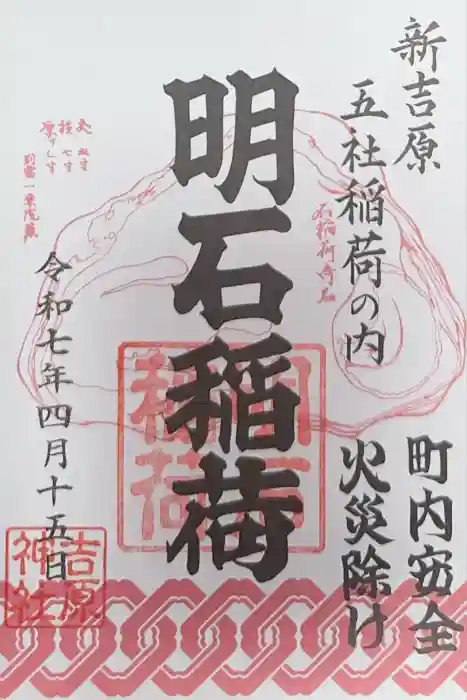 新吉原
五社稲荷の内
町内安全
火災除け
明石稲荷
明石稲荷
石稲荷奇石
令和七年四月十五日
吉原神社